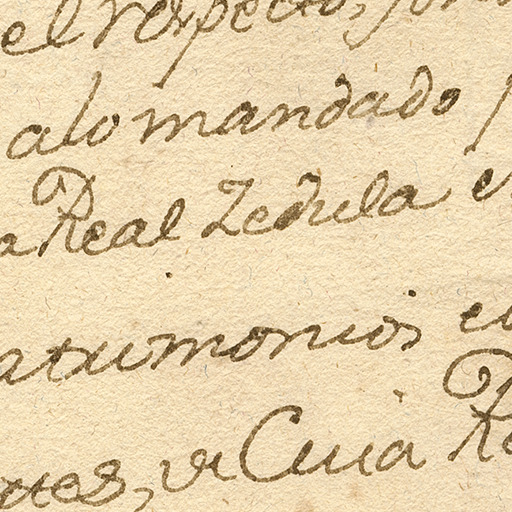 el respecto,
alo mandado
a Real Zedula
atrimonios
Cuia